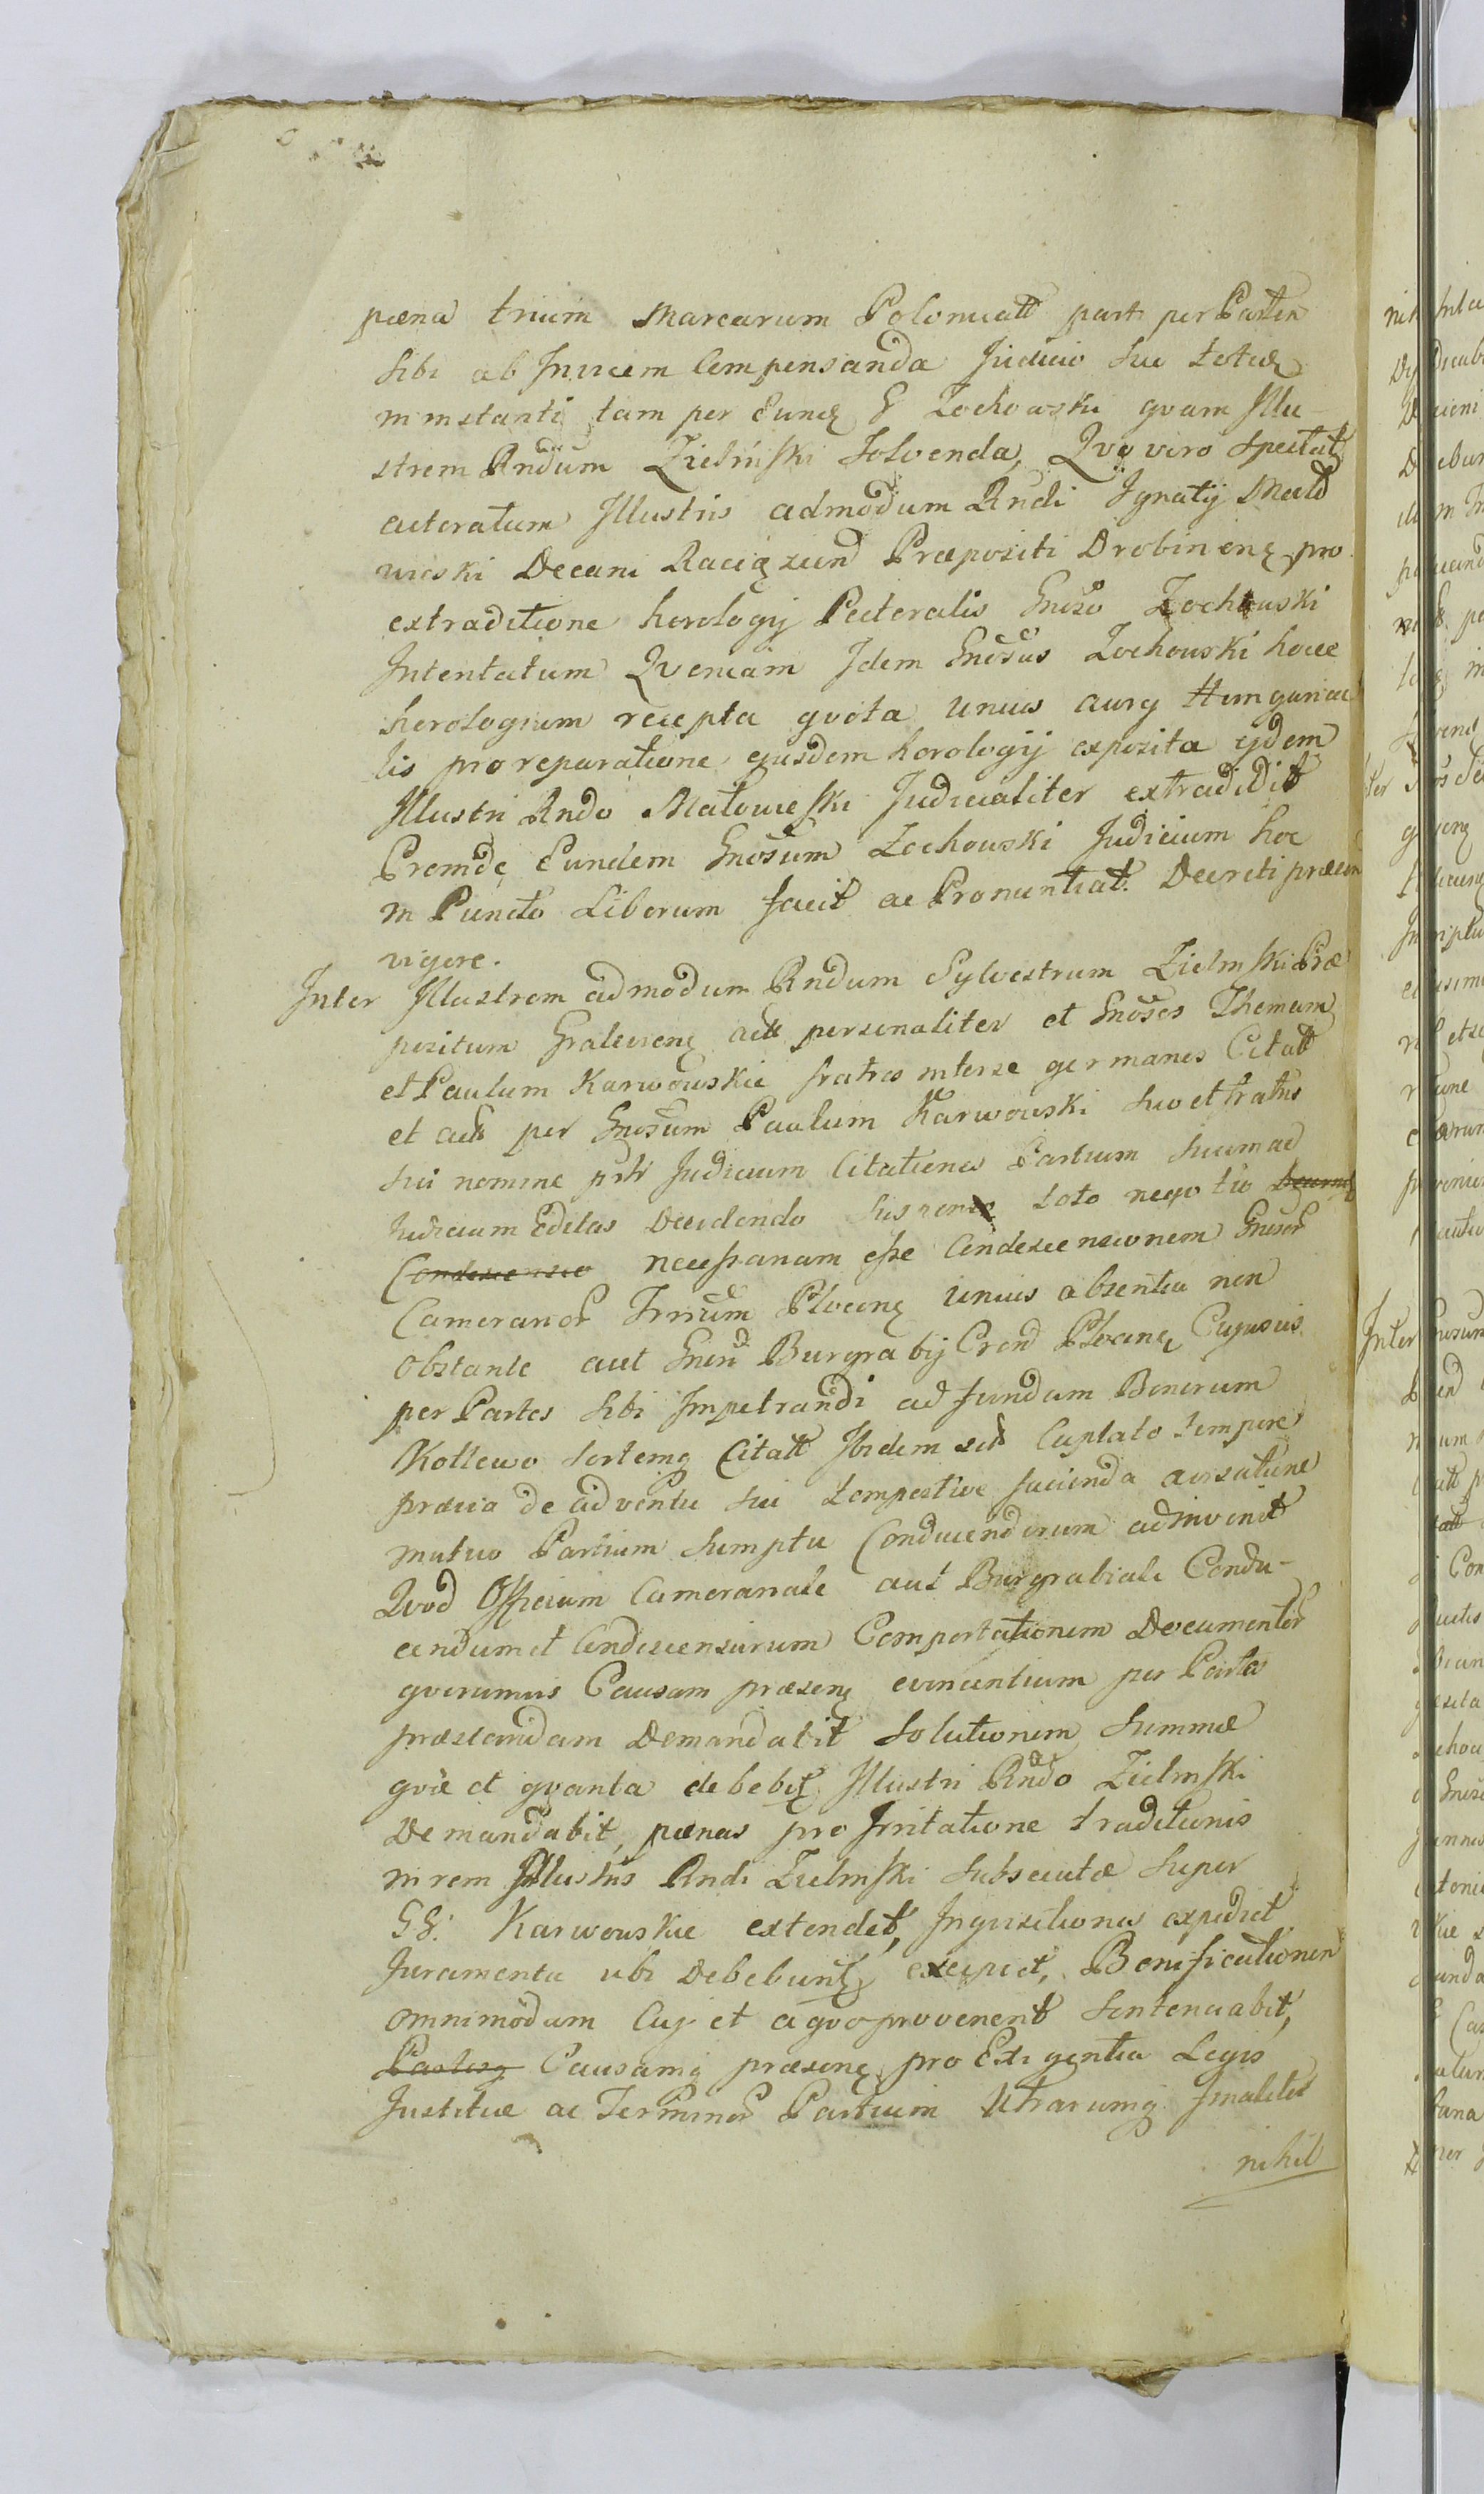 pæna trium Marcarum Polonicatt part per Partem
sibi ab Invicem Compensanda Judicio suo totiq
in instanti tam per Eunq G Zochowski qvam Illu-
strem Rndum Zielinski Solvenda, Qvo viro spectat
actoratum Illustris admodum Rndi Ignatij Mało
wieski Decani Raciązen Præpositi Drobinenę pro
extraditione horologij Pectoralis Gnoso Zochowski
Intentatum Qvoniam Idem Gnosus Zochowski hocce
horologium recepta qvota unius aurej Hungarica
lis pro reparatione ejusdem horologij exposita ejdem
Illustri Rndo Małowieski Judicialiter extradidit
Proinde Eundem Gnosum Zochowski Judicium hoc
in Puncto Liberum facit ac Pronuntiat. Decreti præsen
vigore.
Inter Illustrem admodum Rndum Sylvestrum Zielinski Præ
positum Gralevienę actt personaliter et Gnosos Thomam
et Paulum Karwowskie fratres interse germanos Citatt
et actt per Gnosum Paulum Karwowski suo et fratris
sui nomine Judicium Citationes Partium suum ad
Judicium Editas Decidendo suspenso toto negotio
Condescensio necessariam esse Condescensionem Gnosor
Camerarior Trrum Plocenę unius absentia non
obstante aut Gnosi Burgrabij Cren Plocenę Cujusvis
per Partes sibi Impetrandi ad fundum Bonorum
Kotlewo sortemq Citatt Ibidem Captato tempore
prævia de adventu sui tempestive facienda avisatione
mutuo Partium sumptu Conducendorum adinvenit
Qvod Officium Camerariale aut Burgrabiale Condu-
cendum et Condescensurum Comportationem Documentor
qvorumvis Causam præsenę evincentium per Partes
præstandam Demandabit Solutionem Summæ
qvæ et qvanta debebit Illustri Rndo Zielinski
Demandabit, pœnas pro Irritatione traditionis
in rem Illustris Rndi Zielinski subsecutæ super
GG: Karwowskie extendet, Inqvisitiones expediet
Juramenta ubi Debebunt excipiet, Bonificationem
omnimodam Cuj et a qvo provenerit Sentenciabit,
Partesq Causamq præsenę pro Exigentia Legis
Justitiæ ac Terminor Partium Utrarumq finaliter
nihil